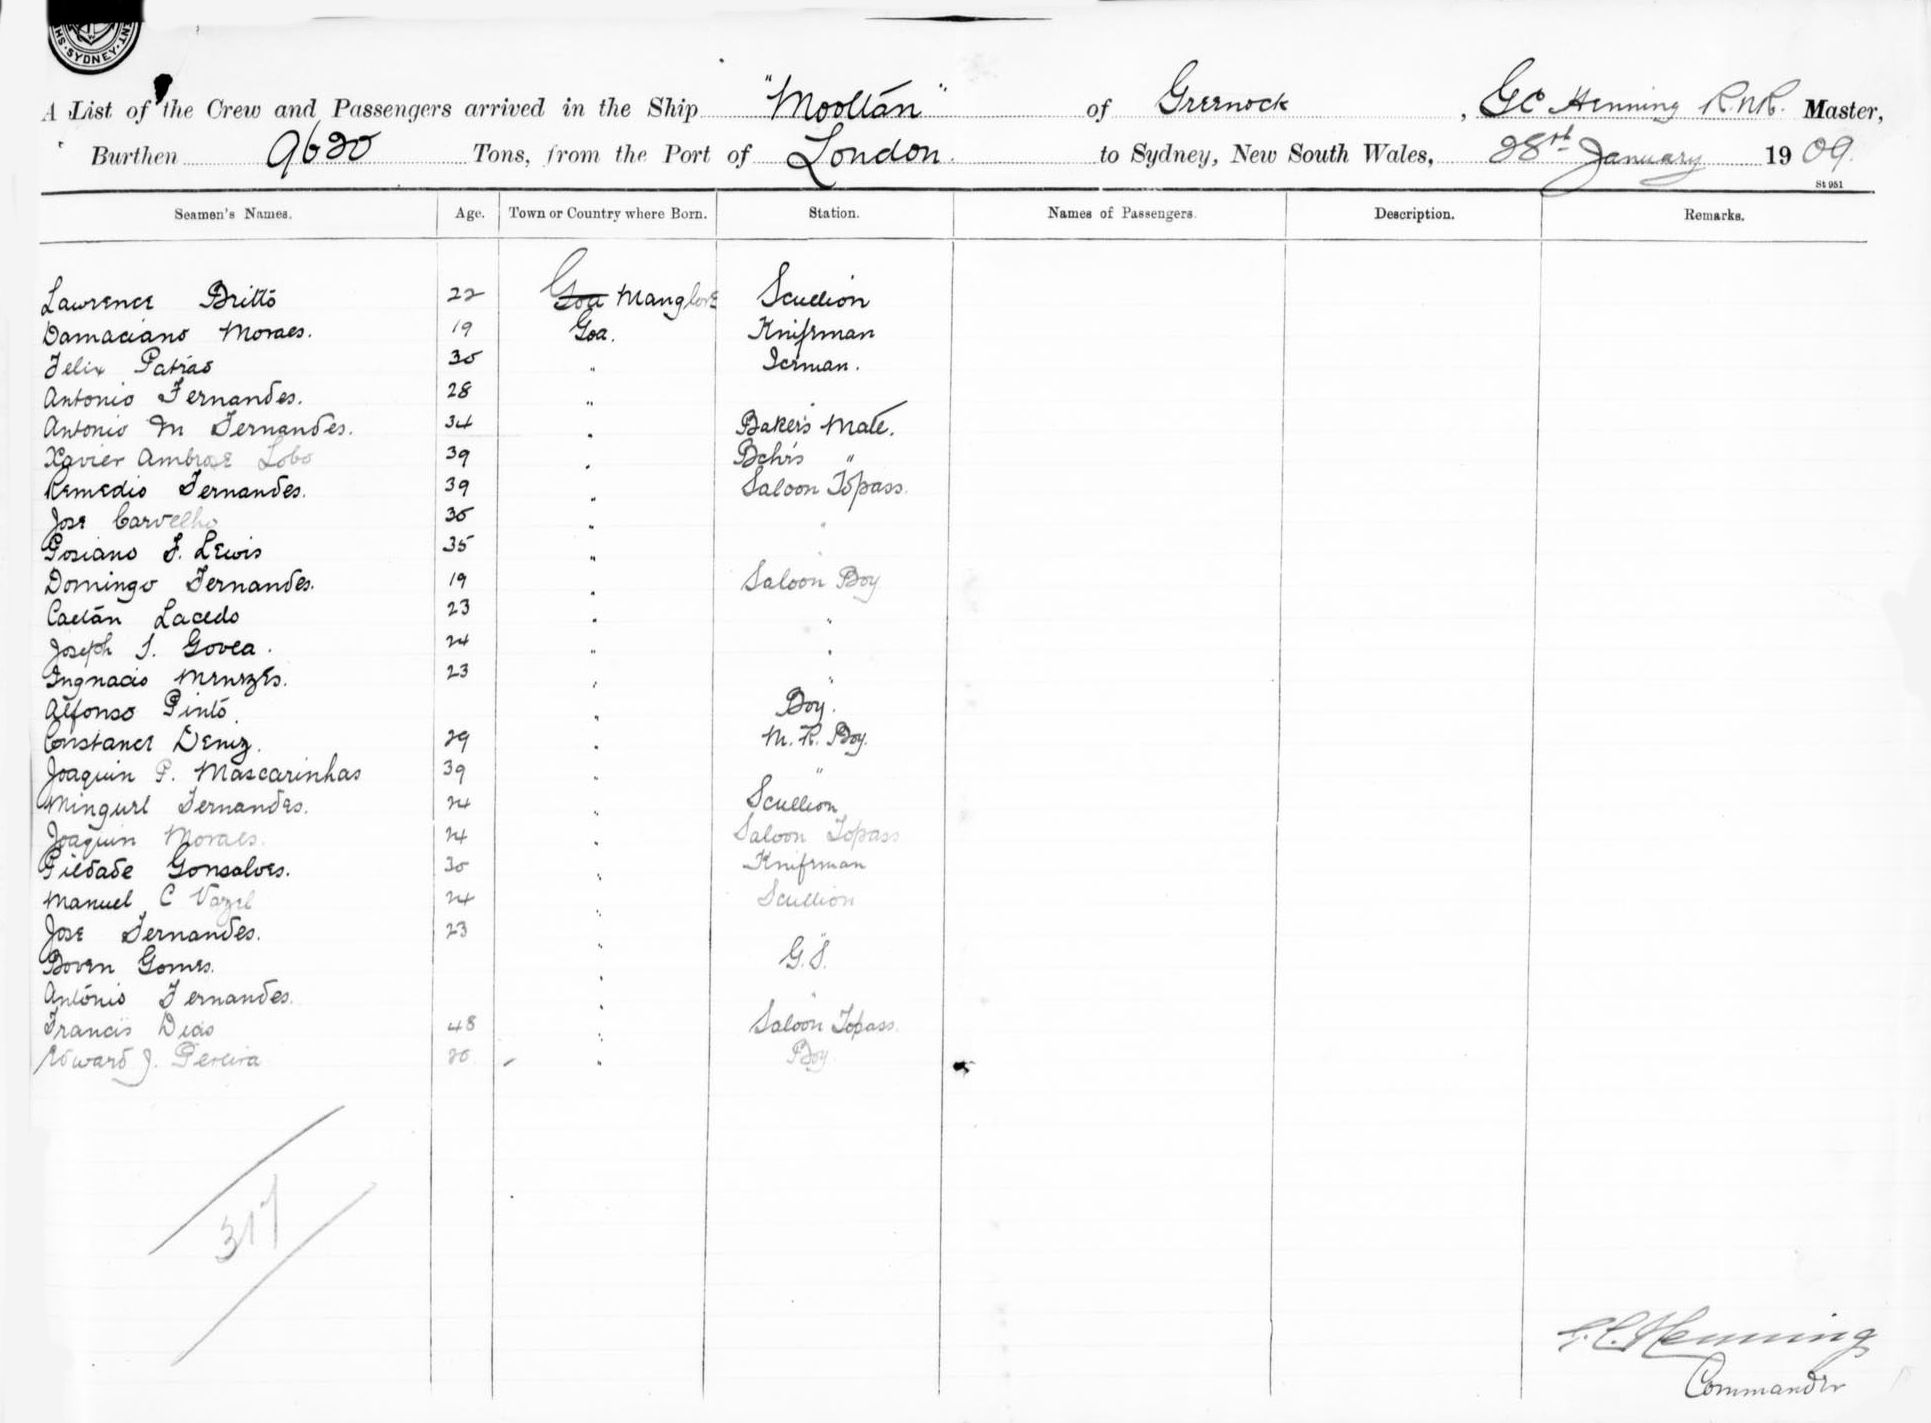 SYDNEY
A List of the Crew and Passengers arrived in the Ship "Mooltan" of Greenock, GC Henning R.N.R. Master,
Burthen 9620 Tons, from the Port of London. to Sydney, New South Wales, 28th January 1909.
St 951
Seamen's Names. Age. Town or Country where Born. Station. Names of Passengers. Description. Remarks.
Lawrence Britto 22 Goa Manglore Scullion
Damaciano Moraes. 19 Goa. Knifeman
Felix Patrao 30 " Iceman.
Antonio Fernandes. 28 " "
Antonio M Fernandes. 34 " Baker's Mate.
Xavier Ambrose Lobo 39 " Bchr's "
Remedio Fernandes. 39 " Saloon Topass.
Jose Carvelho 30 " "
Gosiano F. Lewis 35 " "
Domingo Fernandes. 19 " Saloon Boy
Caetan Lacedo 23 " "
Joseph S. Govea. 24 " "
Ingnacio Menezes. 23 " "
Alfonso Pinto. " Boy.
Constance Deniz. 29 " M. R. Boy.
Joaquin P. Mascarinhas 39 " "
Minguel Fernandes. 24 " Scullion
Joaquin Moraes. 24 " Saloon Topass
Piedade Gonsalves. 30 " Knifeman
Manuel C Vazel 24 " Scullion
Jose Fernandes. 23 " "
Boven Gomes. " G.S.
Antonio Fernandes. " "
Francis Dias 48 " Saloon Topass.
Edward J. Pereira 20 " Boy
317
G.C. Henning
Commander